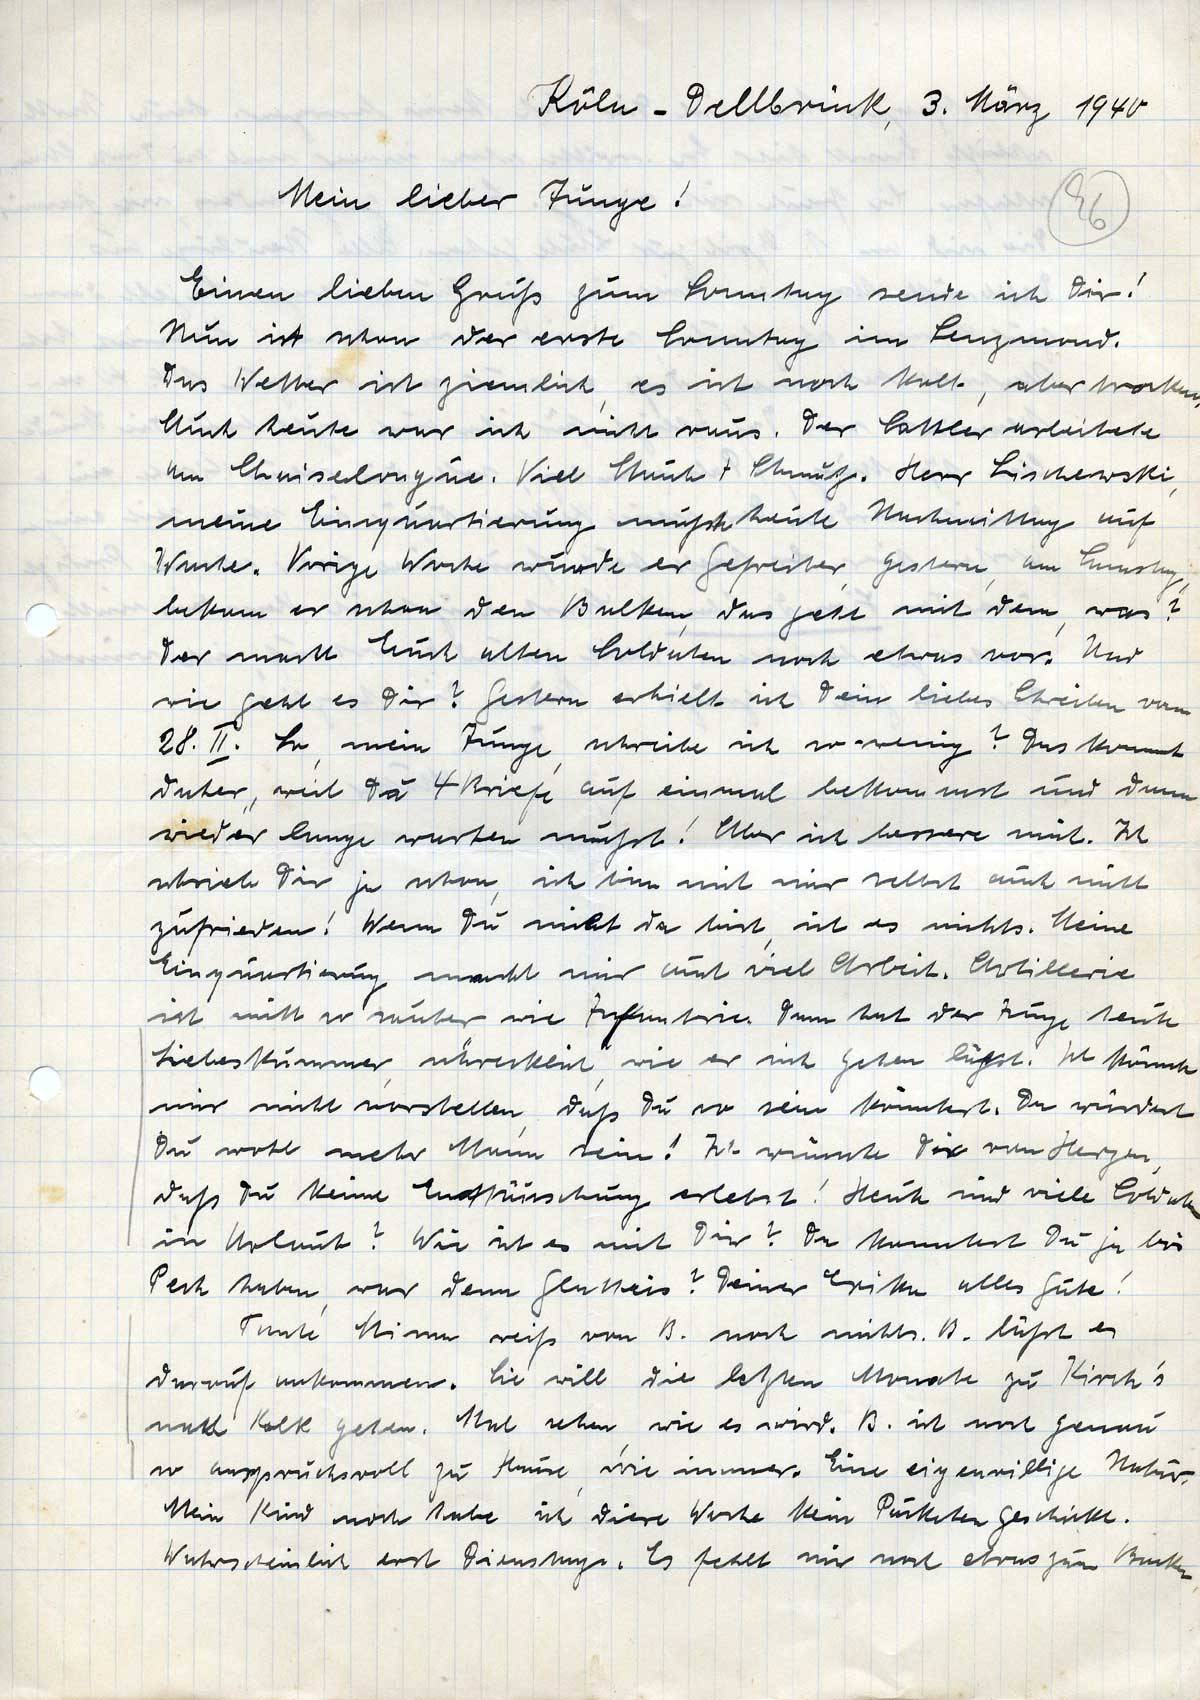 Köln - Dellbrück, 3. März 1940
Mein lieber Junge!
96
Einen lieben Gruß zum Sonntag sende ich Dir!
Nun ist schon der erste Sonntag im Lenzmond.
Das Wetter ist ziemlich, es ist noch kalt, aber trocken.
Auch heute war ich nicht raus. Der Sattler arbeitete
am Chaiselongue. Viel Staub + Schmutz. Herr Lischewski,
meine Einquartierung mußte heute Nachmittag auf
Wache. Vorige Woche wurde er Gefreiter, gestern, am Samstag,
bekam er schon den Balken, das geht mit dem, was?
Der macht Euch alten Soldaten noch etwas vor. Und
wie geht es Dir? Gestern erhielt ich Dein liebes Schreiben vom
28. II. So, mein Junge, schreibe ich so wenig? Das kommt
daher, weil Du 4 Briefe auf einmal bekommst und dann
wieder lange warten mußt! Aber ich bessere mich. Ich
schrieb Dir ja schon, ich bin mit mir selbst auch nicht
zufrieden! Wenn Du nicht da bist, ist es nichts. Meine
Einquartierung macht mir auch viel Arbeit. Artillerie
ist nicht so sauber wie Infantrie. Dann hat der Junge heute
Liebeskummer, schrecklich, wie er sich gehen läßt. Ich könnte
mir nicht vorstellen, daß Du so sein könntest. Da würdest
Du wohl mehr Mann sein! Ich wünsche Dir von Herzen,
daß Du keine Enttäuschung erlebst! Heute sind viele Soldaten
in Urlaub? Wie ist es mit Dir? Da konntest Du ja bös
Pech haben, war denn Glatteis? Deiner Erika alles Gute!
Tante Mimm weiß von B. noch nichts. B. läßt es
darauf ankommen. Sie will die letzten Monate zu Kirch's
nach Kalk gehen. Mal sehen wie es wird. B. ist noch genau
so anspruchsvoll zu Hause, wie immer. Eine eigenwillige Natur.
Mein Kind noch habe ich diese Woche kein Päckchen geschickt.
Wahrscheinlich erst Dienstags. Es fehlt mir noch etwas zum Backen,